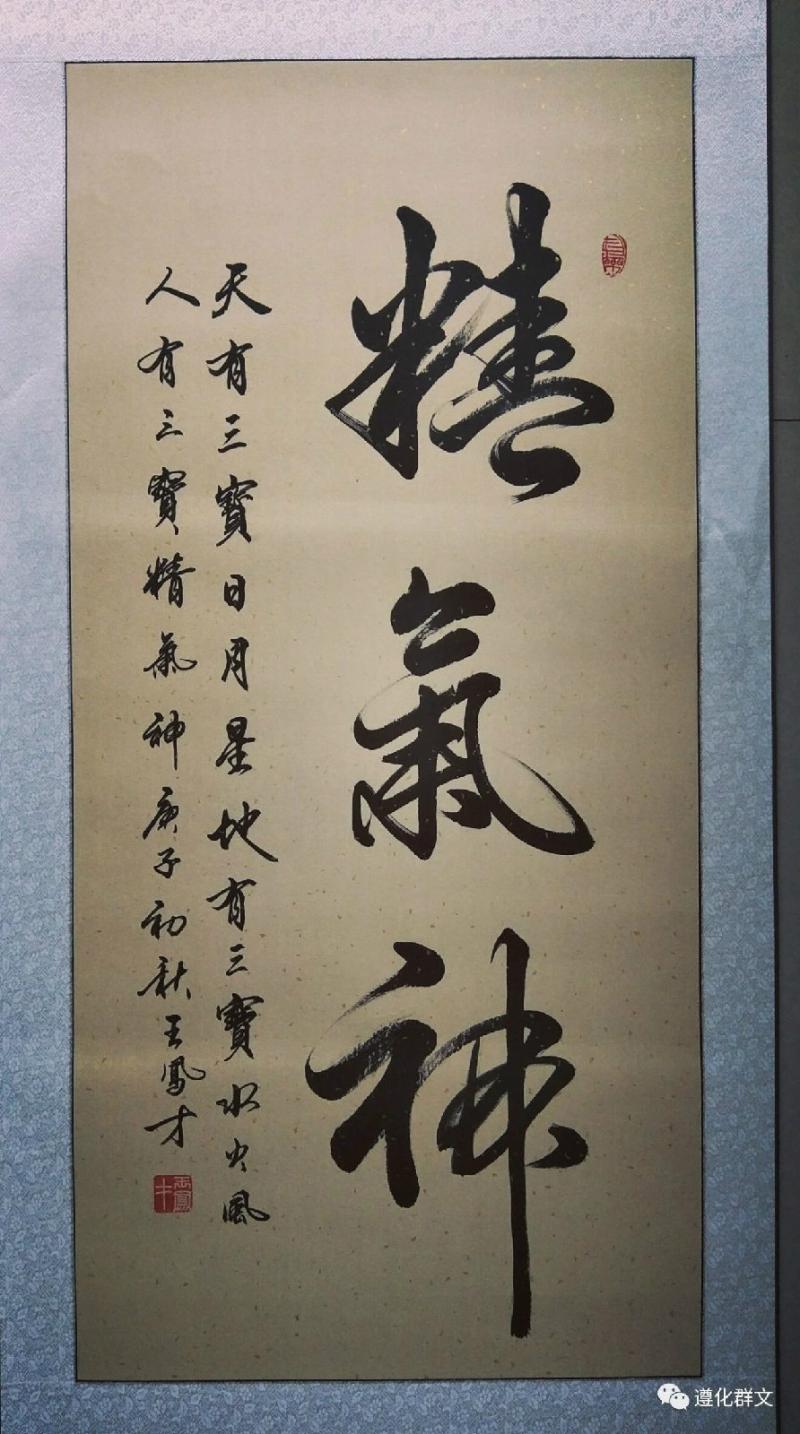 精氣神
天有三寶日月星地有三寶水火風
人有三寶精氣神庚子初秋王鳳才
遵化群文